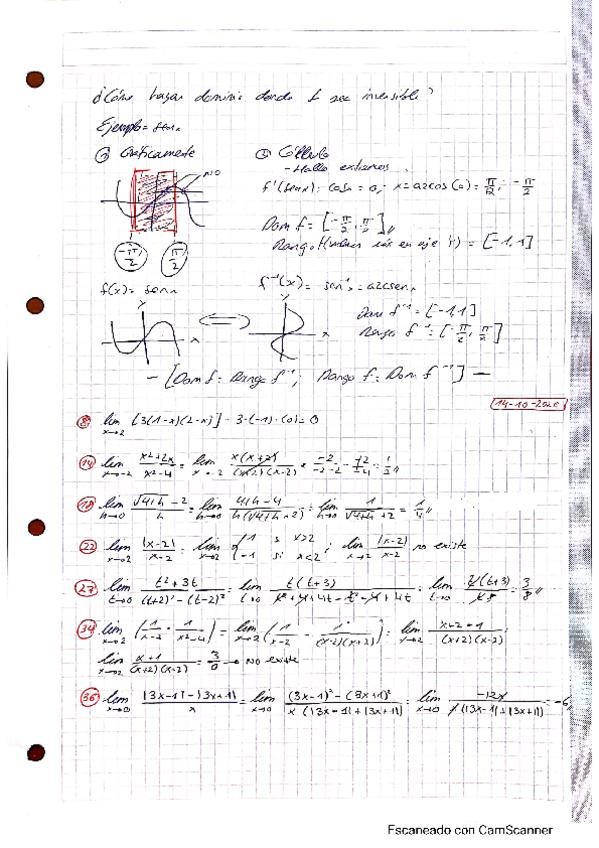 ¿Cómo hayar dominio donde f sea invertible?
Ejemplo = senx
① Gráficamente
② Cálculo
NO
- Hallo extremos.
f'(senx): cosx = 0; x = arccos(0) = π/2; -π/2
Dom f = [-π/2, π/2]
= [-1,1]
-π/2 π/2
f(x) = senx
f⁻¹(x) = sen⁻¹ = arcsenx
Y Y
X X
Dom f⁻¹ = [-1,1]
Rango f⁻¹ = [-π/2, π/2]
- [Dom f = Rango f⁻¹; Rango f = Dom f⁻¹] -
14-10-2020
lim x→2 [3(1-x)(2-x)] = 3·(-1)·(0) = 0
⑭ lim x→-2 (x²+2x)/(x²-4) = lim x→-2 x(x+2)/(x+2)(x-2) = -2/(-2-2)
⑱ lim h→0 (√(4+h) - 2)/h = lim h→0 (4+h-4)/h(√(4+h)+2) = lim h→0 1/(√(4+h)+2) = 1/4
㉒ lim x→2 |x-2|/(x-2) = lim x→2 { 1 si x>2 -1 si x<2 ; lim x→2 |x-2|/(x-2) no existe
㉗ lim t→0 (t²+3t)/((t+2)²-(t-2)²) = lim t→0 t(t+3)/(t²+4+4t-t²-4+4t) = lim t→0 t(t+3)/8t = 3/8
㉞ lim x→2 (1/(x-2) - 1/(x²-4)) = lim x→2 (1/(x-2) - 1/(x-2)(x+2)) = lim x→2 (x+2-1)/(x+2)(x-2) =
lim x→2 (x+1)/(x+2)(x-2) = 3/0 → NO existe
㊱ lim x→0 (|3x-1|-|3x+1|)/x = lim x→0 ((3x-1)²-(3x+1)²)/x(|3x-1|+|3x+1|) = lim x→0 -12x/x(|3x-1|+|3x+1|) = -6
Escaneado con CamScanner